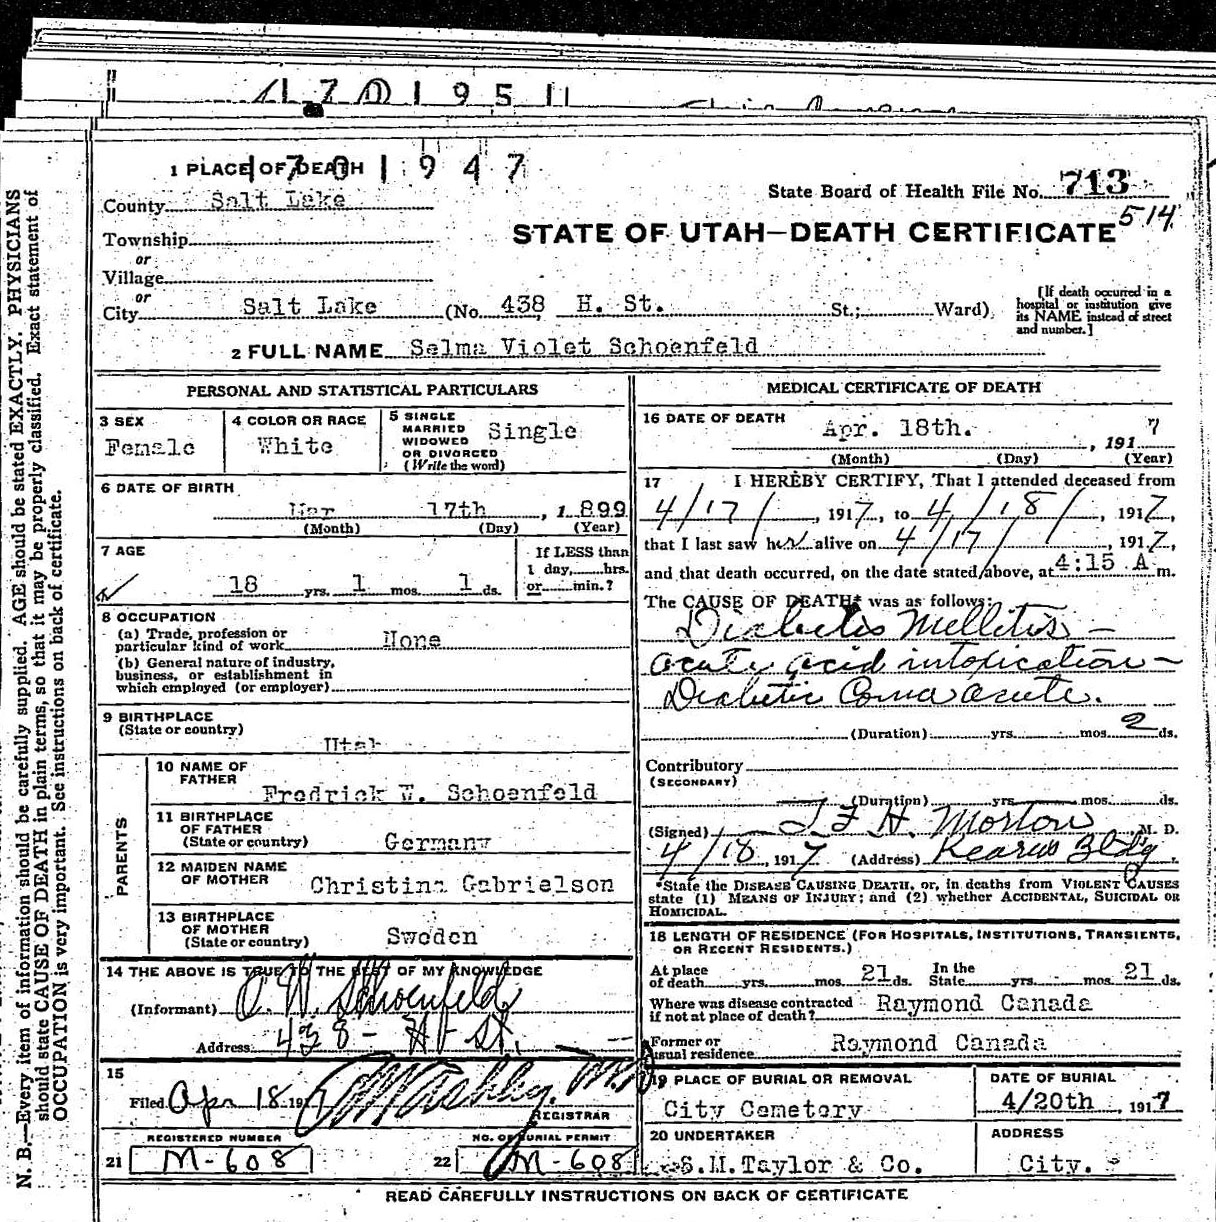 1701951
1701947
1 PLACE OF DEATH
County Salt Lake
State Board of Health File No. 713
514
Township
or
Village
or
STATE OF UTAH—DEATH CERTIFICATE
City Salt Lake (No. 438 H. St. St.; Ward)
[If death occurred in a
hospital or institution give
its NAME instead of street
and number.]
2 FULL NAME Selma Violet Schoenfeld
PERSONAL AND STATISTICAL PARTICULARS
3 SEX
Female
4 COLOR OR RACE
White
5 SINGLE
MARRIED
WIDOWED
OR DIVORCED
(Write the word)
Single
6 DATE OF BIRTH
Mar 17th , 1899
(Month) (Day) (Year)
7 AGE
18 yrs. 1 mos. 1 ds.
If LESS than
1 day, hrs.
or min.?
8 OCCUPATION
(a) Trade, profession or
particular kind of work None
(b) General nature of industry,
business, or establishment in
which employed (or employer)
9 BIRTHPLACE
(State or country)
Utah
PARENTS
10 NAME OF
FATHER
Fredrick W. Schoenfeld
11 BIRTHPLACE
OF FATHER
(State or country) Germany
12 MAIDEN NAME
OF MOTHER Christina Gabrielson
13 BIRTHPLACE
OF MOTHER
(State or country) Sweden
14 THE ABOVE IS TRUE TO THE BEST OF MY KNOWLEDGE
(Informant) Schoenfeld
Address 438 - H St.
15
Filed Apr 18 1917
REGISTRAR
REGISTERED NUMBER
21 M-608
NO. OF BURIAL PERMIT
22 M-608
MEDICAL CERTIFICATE OF DEATH
16 DATE OF DEATH
Apr. 18th. , 1917
(Month) (Day) (Year)
17 I HEREBY CERTIFY, That I attended deceased from
4/17/ , 1917, to 4/18/ , 1917,
that I last saw her alive on 4/17/ , 1917,
and that death occurred, on the date stated above, at 4:15 A m.
The CAUSE OF DEATH* was as follows:
Diabetis Mellitus -
acute acid intoxication -
Diabetic Coma acute.
(Duration) yrs. mos. 2 ds.
Contributory
(SECONDARY)
(Duration) yrs. mos. ds.
(Signed) Morton M. D.
4/18, 1917 (Address) Kearns Bldg.
*State the DISEASE CAUSING DEATH, or, in deaths from VIOLENT CAUSES
state (1) MEANS OF INJURY; and (2) whether ACCIDENTAL, SUICIDAL OR
HOMICIDAL.
18 LENGTH OF RESIDENCE (FOR HOSPITALS, INSTITUTIONS, TRANSIENTS,
OR RECENT RESIDENTS.)
At place
of death yrs. mos. 21 ds.
In the
State yrs. mos. 21 ds.
Where was disease contracted
if not at place of death? Raymond Canada
Former or
usual residence Raymond Canada
19 PLACE OF BURIAL OR REMOVAL
City Cemetery
DATE OF BURIAL
4/20th , 1917
20 UNDERTAKER
S.M.Taylor & Co.
ADDRESS
City.
READ CAREFULLY INSTRUCTIONS ON BACK OF CERTIFICATE
N. B.—Every item of information should be carefully supplied. AGE should be stated EXACTLY. PHYSICIANS
should state CAUSE OF DEATH in plain terms, so that it may be properly classified. Exact statement of
OCCUPATION is very important. See instructions on back of certificate.